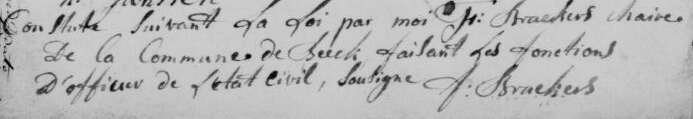 Constaté Suivant La Loi par moi J: Braekers Maire
De la Commune de Beek faisant Les fonctions
D'officier de L'état Civil, Sousigne J: Braekers